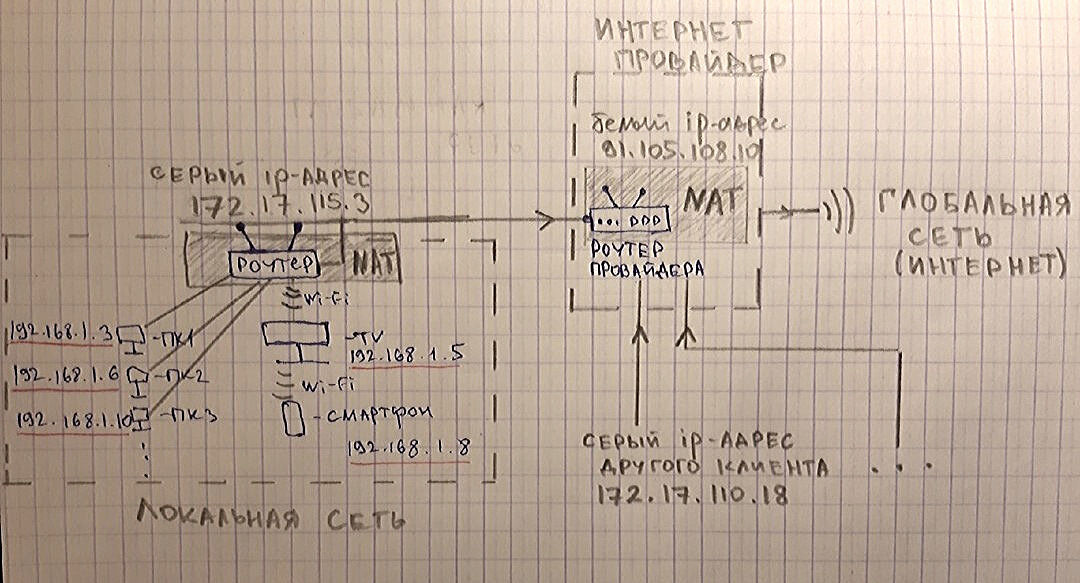 ИНТЕРНЕТ
ПРОВАЙДЕР
белый ip-адрес
91.105.108.10
NAT
РОУТЕР
ПРОВАЙДЕРА
ГЛОБАЛЬНАЯ
СЕТЬ
(ИНТЕРНЕТ)
СЕРЫЙ ip-АДРЕС
172.17.115.3
РОУТЕР
NAT
Wi-Fi
192.168.1.3 -ПК1
-TV
192.168.1.5
192.168.1.6 -ПК2
Wi-Fi
192.168.1.10 -ПК3
-СМАРТФОН
192.168.1.8
ЛОКАЛЬНАЯ СЕТЬ
СЕРЫЙ ip-АДРЕС
ДРУГОГО КЛИЕНТА
172.17.110.18
. . .